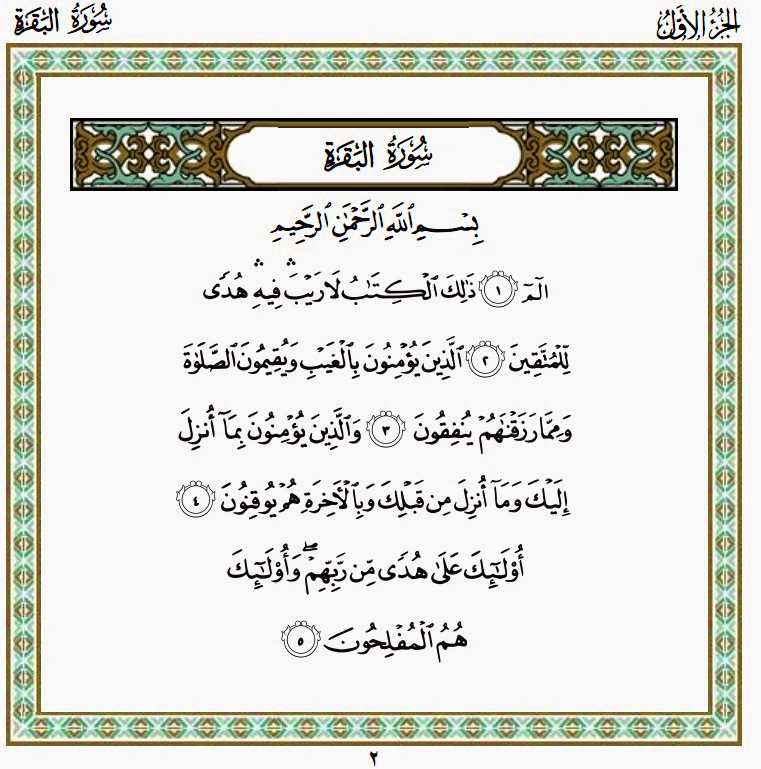 الجُزْءُ الأَوَّلُ
سُورَةُ البَقَرَةِ
سُورَةُ البَقَرَةِ
بِسْمِ ٱللَّهِ ٱلرَّحْمَٰنِ ٱلرَّحِيمِ
الٓمٓ ١ ذَٰلِكَ ٱلْكِتَٰبُ لَا رَيْبَ ۛ فِيهِ ۛ هُدًى
لِّلْمُتَّقِينَ ٢ ٱلَّذِينَ يُؤْمِنُونَ بِٱلْغَيْبِ وَيُقِيمُونَ ٱلصَّلَوٰةَ
وَمِمَّا رَزَقْنَٰهُمْ يُنفِقُونَ ٣ وَٱلَّذِينَ يُؤْمِنُونَ بِمَآ أُنزِلَ
إِلَيْكَ وَمَآ أُنزِلَ مِن قَبْلِكَ وَبِٱلْأَخِرَةِ هُمْ يُوقِنُونَ ٤
أُو۟لَٰٓئِكَ عَلَىٰ هُدًى مِّن رَّبِّهِمْ ۖ وَأُو۟لَٰٓئِكَ
هُمُ ٱلْمُفْلِحُونَ ٥
٢